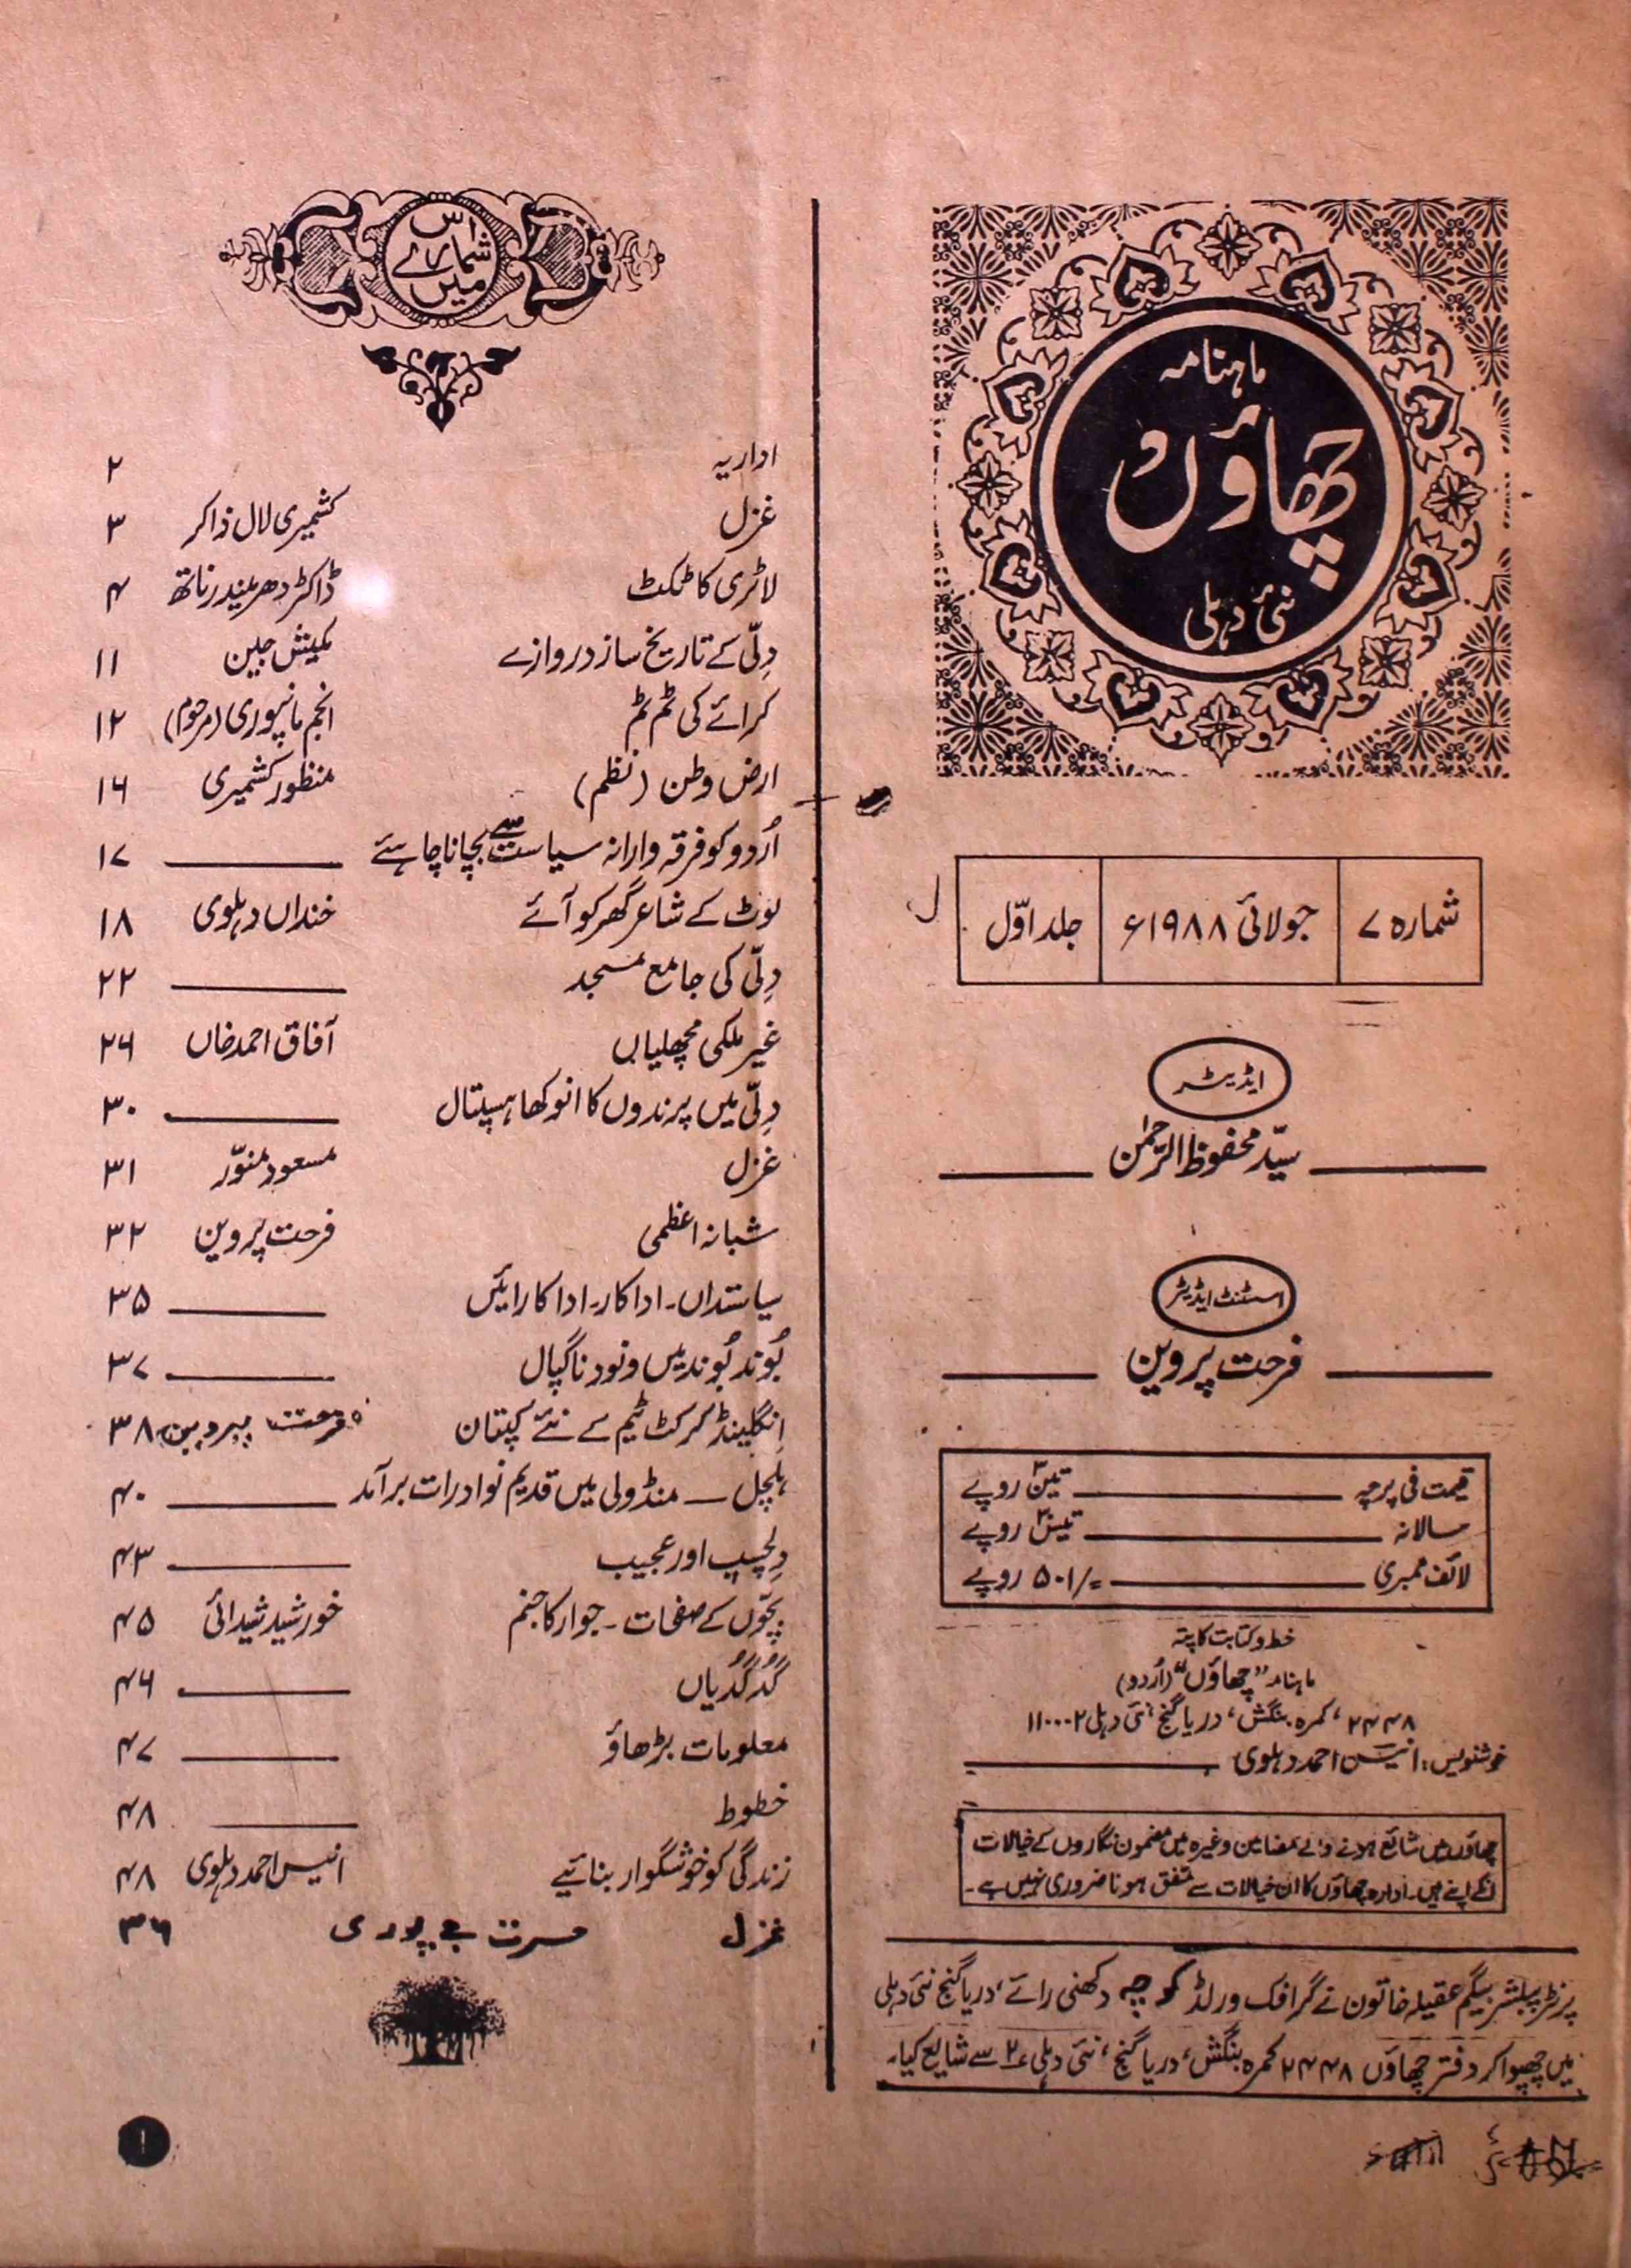 ماہنامہ
چھاؤں
نئی دہلی
شمارہ ۷
جولائی ۱۹۸۸ء
جلد اوّل
ایڈیٹر
سیّد محفوظ الرّحمٰن
اسسٹنٹ ایڈیٹر
فرحت پروین
قیمت فی پرچہ ــــــــ تین۳ روپے
سالانہ ــــــــ تیس۳۰ روپے
لائف ممبری ــــــــ =/۵۰۱ روپے
خط و کتابت کا پتہ
ماہنامہ "چھاؤں" (اُردو)
۲۴۴۸، کمرہ بنگش، دریا گنج، نئی دہلی ۱۱۰۰۰۲
خوشنویس: انیس احمد دہلوی
چھاؤں میں شائع ہونے والے مضامین وغیرہ میں مضمون نگاروں کے خیالات
انکے اپنے ہیں۔ ادارہ چھاؤں کا ان خیالات سے متفق ہونا ضروری نہیں ہے۔
پرنٹر پبلشر بیگم عقیلہ خاتون نے گرافک ورلڈ کوچہ دکھنی رائے، دریا گنج نئی دہلی
میں چھپوا کر دفتر چھاؤں ۲۴۴۸ کمرہ بنگش، دریا گنج، نئی دہلی ۲ سے شایع کیا۔
اس
شمارے
میں
اداریہ ۲
غزل کشمیری لال ذاکر ۳
لاٹری کا ٹکٹ ڈاکٹر دھرمیندر ناتھ ۴
دِلّی کے تاریخ ساز دروازے جین ۱۱
کرائے کی ٹم ٹم انجم مانپوری (مرحوم) ۱۲
ارض وطن (نظم) منظور کشمیری ۱۶
اُردو کو فرقہ وارانہ سیاست سے بچانا چاہئے ــــــــ ۱۷
لوٹ کے شاعر گھر کو آئے خنداں دہلوی ۱۸
دِلّی کی جامع مسجد ــــــــ ۲۲
غیر ملکی مچھلیاں آفاق احمد خاں ۲۶
دِلّی میں پرندوں کا انوکھا ہسپتال ــــــــ ۳۰
غزل مسعود منوّر ۳۱
شبانہ اعظمی فرحت پروین ۳۲
سیاستداں۔ اداکار۔ اداکارائیں ــــــــ ۳۵
بُوند بُوند میں ونود ناگپال ــــــــ ۳۷
اِنگلینڈ کرکٹ ٹیم کے نئے کپتان فرحت پروین ۳۸
ہلچل ــ منڈولی میں قدیم نوادرات برآمد ــــــــ ۴۰
دِلچسپ اور عجیب ــــــــ ۴۳
بچّوں کے صفحات۔ جوار کا جنم خورشید شیدائی ۴۵
گُدگُدیاں ــــــــ ۴۶
معلومات بڑھاؤ ــــــــ ۴۷
خطوط ــــــــ ۴۸
زندگی کو خوشگوار بنائیے انیس احمد دہلوی ۴۸
غزل مسرت جے پوری ۳۶
۱